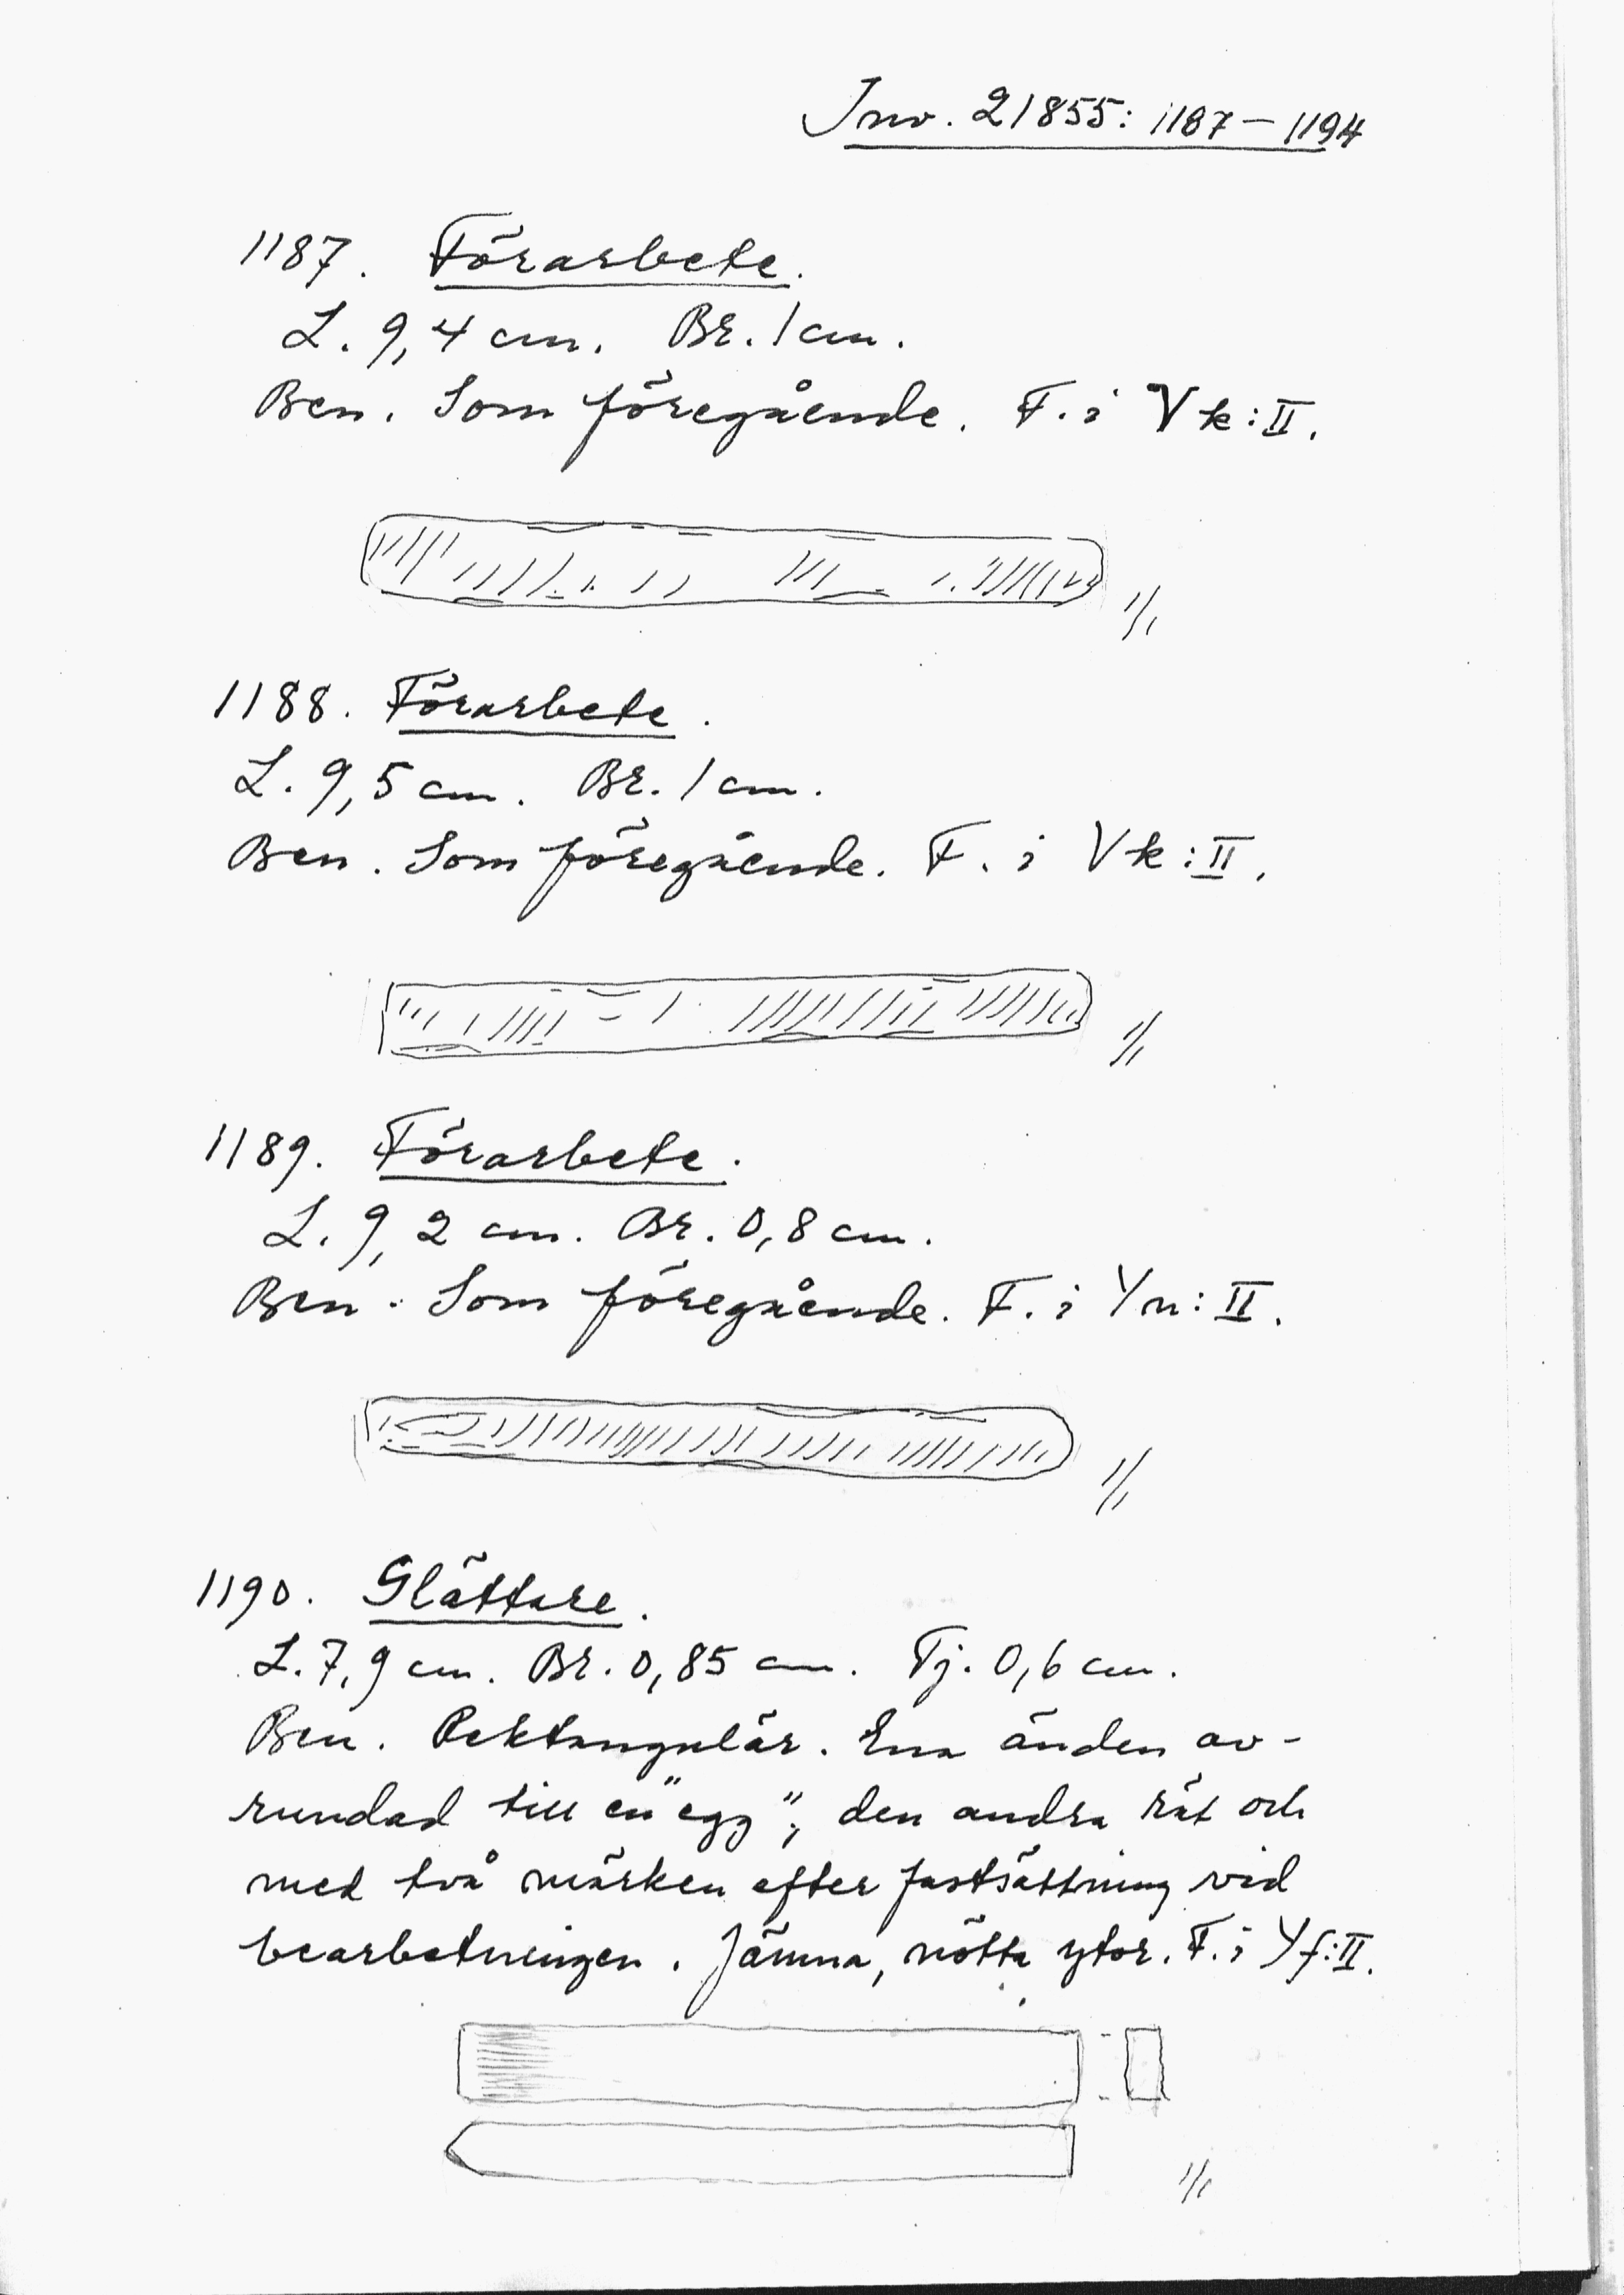 Inv. 21855: 1187–1194
1187. Förarbete.
L. 9,4 cm. Br. 1 cm.
Ben. Som föregående. F. i Vk:II.
1/1
1188. Förarbete.
L. 9,5 cm. Br. 1 cm.
Ben. Som föregående. F. i Vk:II.
1/1
1189. Förarbete.
L. 9,2 cm. Br. 0,8 cm.
Ben. Som föregående. F. i Yn:II.
1/1
1190. Glättare.
L. 7,9 cm. Br. 0,85 cm. Tj. 0,6 cm.
Ben. Rektangulär. Ena änden av-
rundad till en "egg", den andra rät och
med två märken efter fastsättning vid
bearbetningen. Jämna, nötta ytor. F. i Yf:II.
1/1